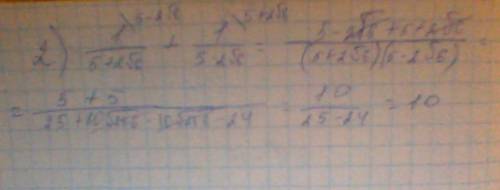 2) 1/(5+2√6) ^5-2√6 + 1/(5-2√6) ^5+2√6 = (5-2√6+5+2√6)/((5+2√6)(5-2√6)) =
= (5+5)/(25+10√6-10√6-24) = 10/(25-24) = 10